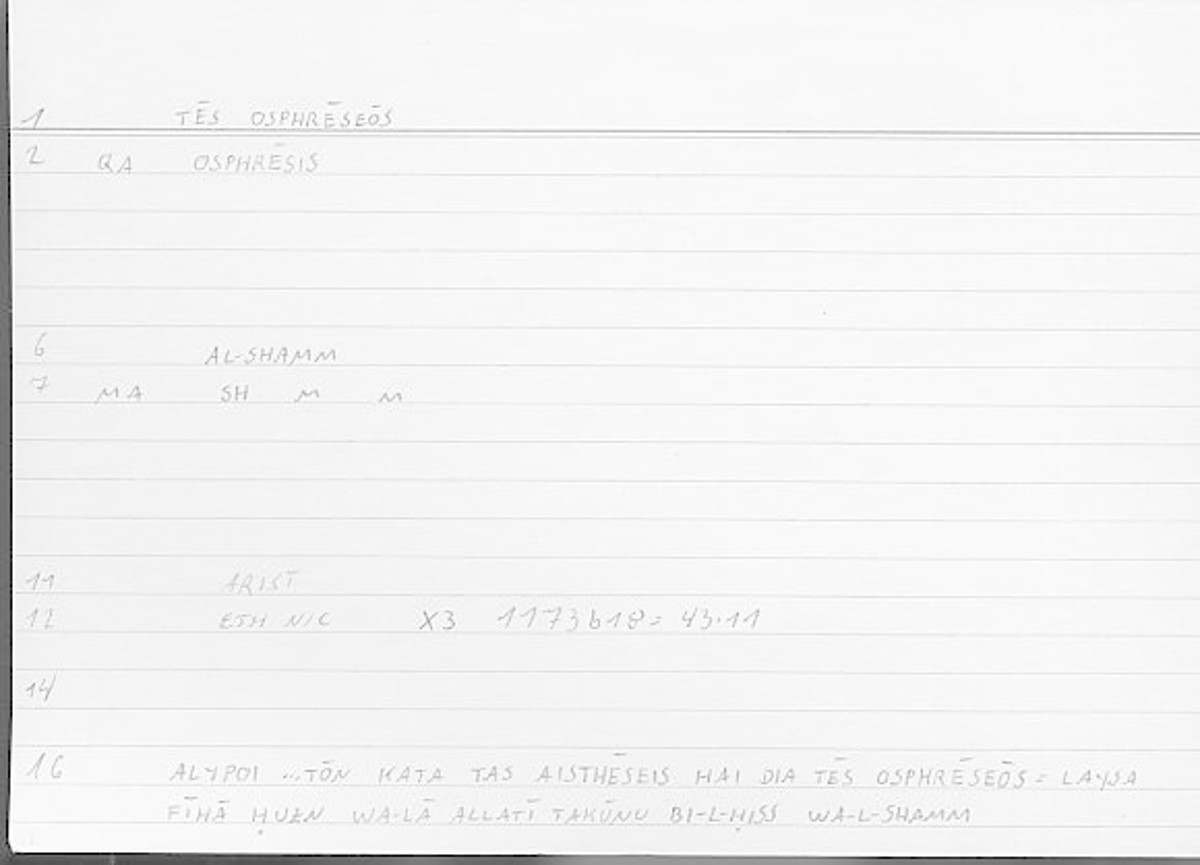 1 TĒS OSPHRĒSEŌS
2 QA OSPHRĒSIS
6 AL-SHAMM
7 MA SH M M
11 ARIST
12 ETH NIC X3 1173b18= 43.11
14
16 ALYPOI ...TŌN KATA TAS AISTHĒSEIS HAI DIA TĒS OSPHRĒSEŌS= LAYSA
FĪHĀ ḤUZN WA-LĀ ALLATĪ TAKŪNU BI-L-ḤISS WA-L-SHAMM